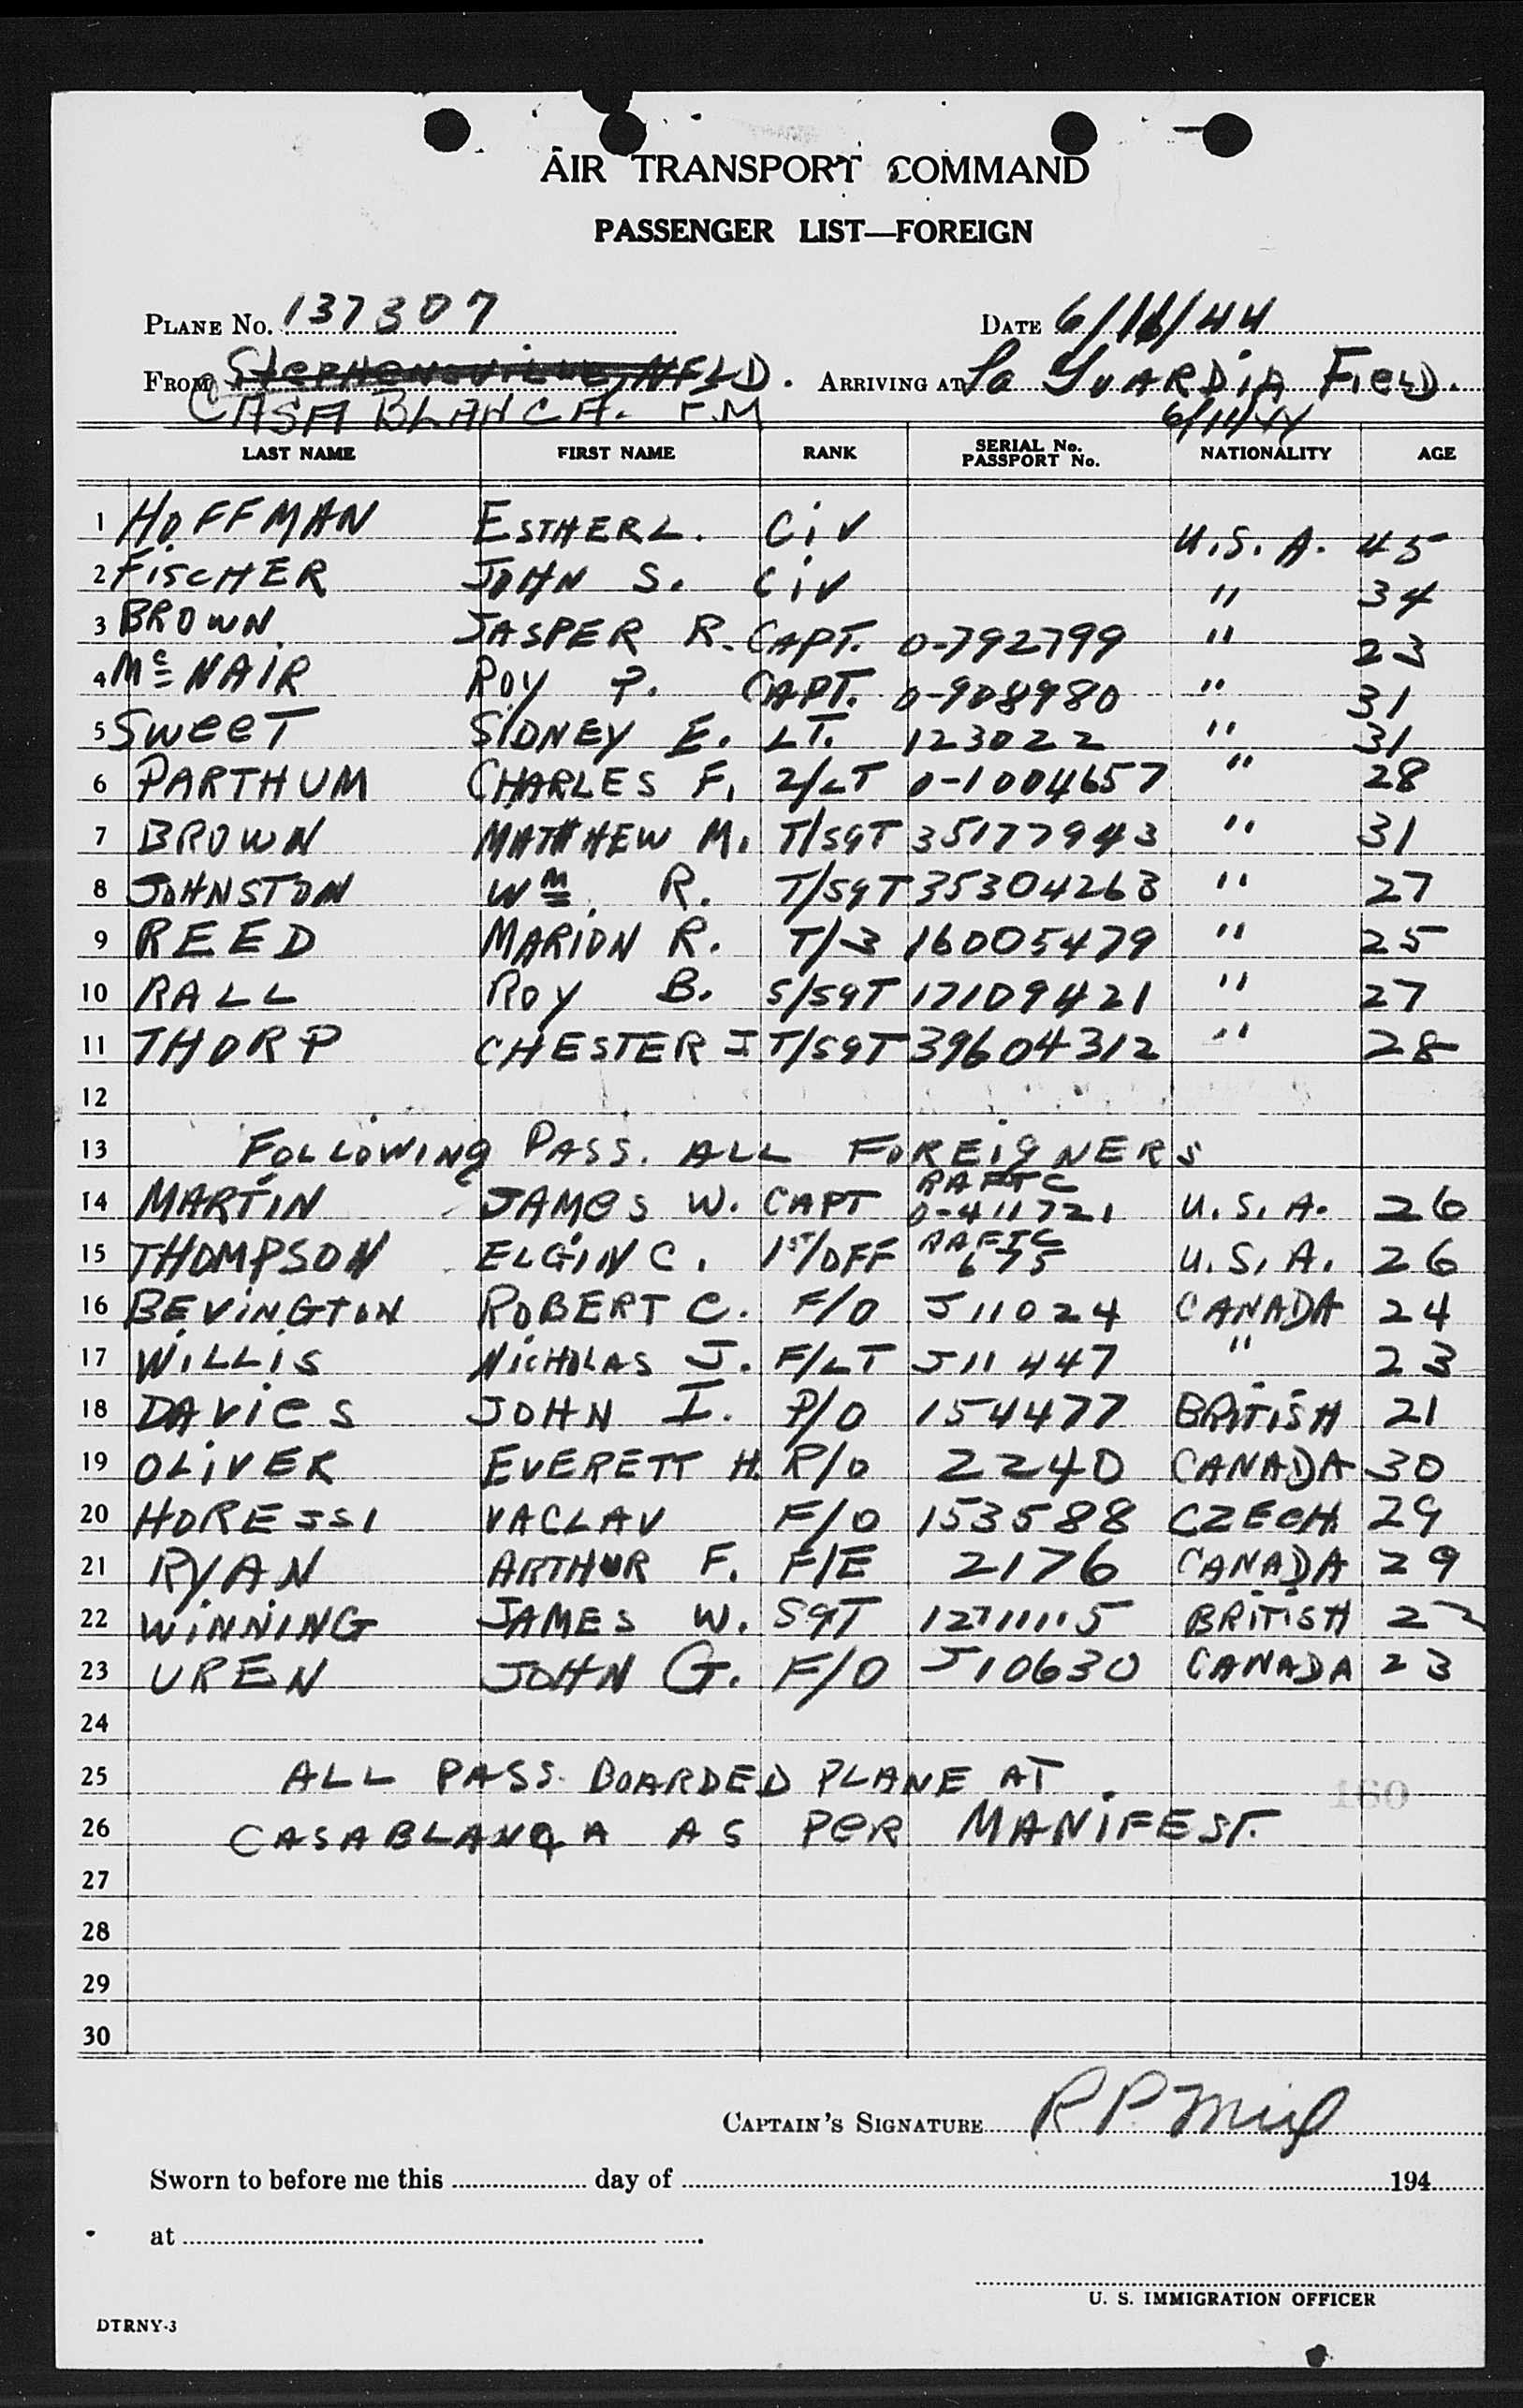 AIR TRANSPORT COMMAND
PASSENGER LIST—FOREIGN
PLANE No. 137307 DATE 6/11/44
FROM STEPHENSVILLE, NFLD. ARRIVING AT La GUARDIA FIELD.
CASA BLANCA. F.M 6/11/44
LAST NAME FIRST NAME RANK SERIAL No. PASSPORT No. NATIONALITY AGE
1 HOFFMAN ESTHER L. CIV U.S.A. 45
2 FISCHER JOHN S. CIV " 34
3 BROWN JASPER R. CAPT. 0-792799 " 23
4 McNAIR ROY P. CAPT. 0-908980 " 31
5 SWEET SIDNEY E. LT. 123022 " 31
6 PARTHUM CHARLES F. 2/LT 0-1004657 " 28
7 BROWN MATTHEW M. T/SGT 35177943 " 31
8 JOHNSTON Wm. R. T/SGT 35304263 " 27
9 REED MARION R. T/3 16005479 " 25
10 RALL ROY B. S/SGT 17109421 " 27
11 THORP CHESTER J T/SGT 39604312 " 28
12
13 FOLLOWING PASS. ALL FOREIGNERS
14 MARTIN JAMES W. CAPT RAFTC 0-411721 U.S.A. 26
15 THOMPSON ELGIN C. 1ST/OFF RAFTC 675 U.S.A. 26
16 BEVINGTON ROBERT C. F/O J11024 CANADA 24
17 WILLIS NICHOLAS J. F/LT J11447 " 23
18 DAVIES JOHN I. P/O 154477 BRITISH 21
19 OLIVER EVERETT H. R/O 2240 CANADA 30
20 HORESSI VACLAV F/O 153588 CZECH 29
21 RYAN ARTHUR F. F/E 2176 CANADA 29
22 WINNING JAMES W. SGT BRITISH 22
23 UREN JOHN G. F/O J10630 CANADA 23
24
25 ALL PASS. BOARDED PLANE AT
160
26 CASABLANCA AS PER MANIFEST.
27
28
29
30
CAPTAIN'S SIGNATURE R.P.
Sworn to before me this day of 194
at
U. S. IMMIGRATION OFFICER
DTRNY-3